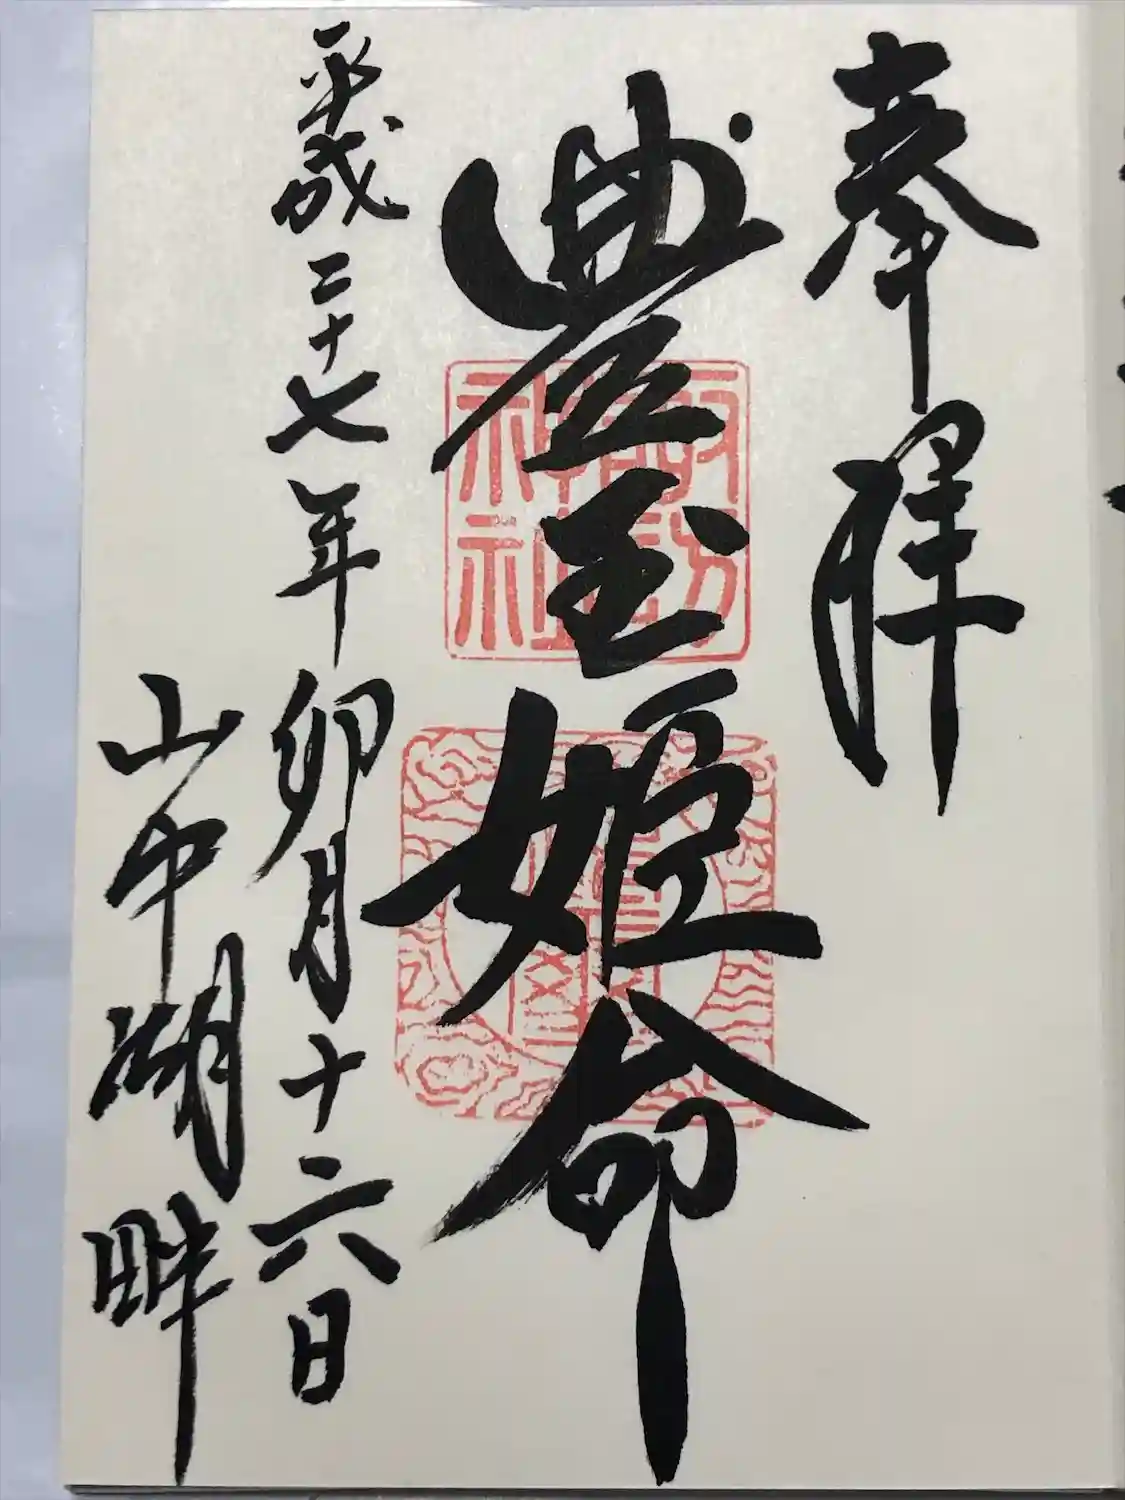 奉拝
豊玉姫命
平成二十七年卯月十六日
山中湖畔
諏訪神社